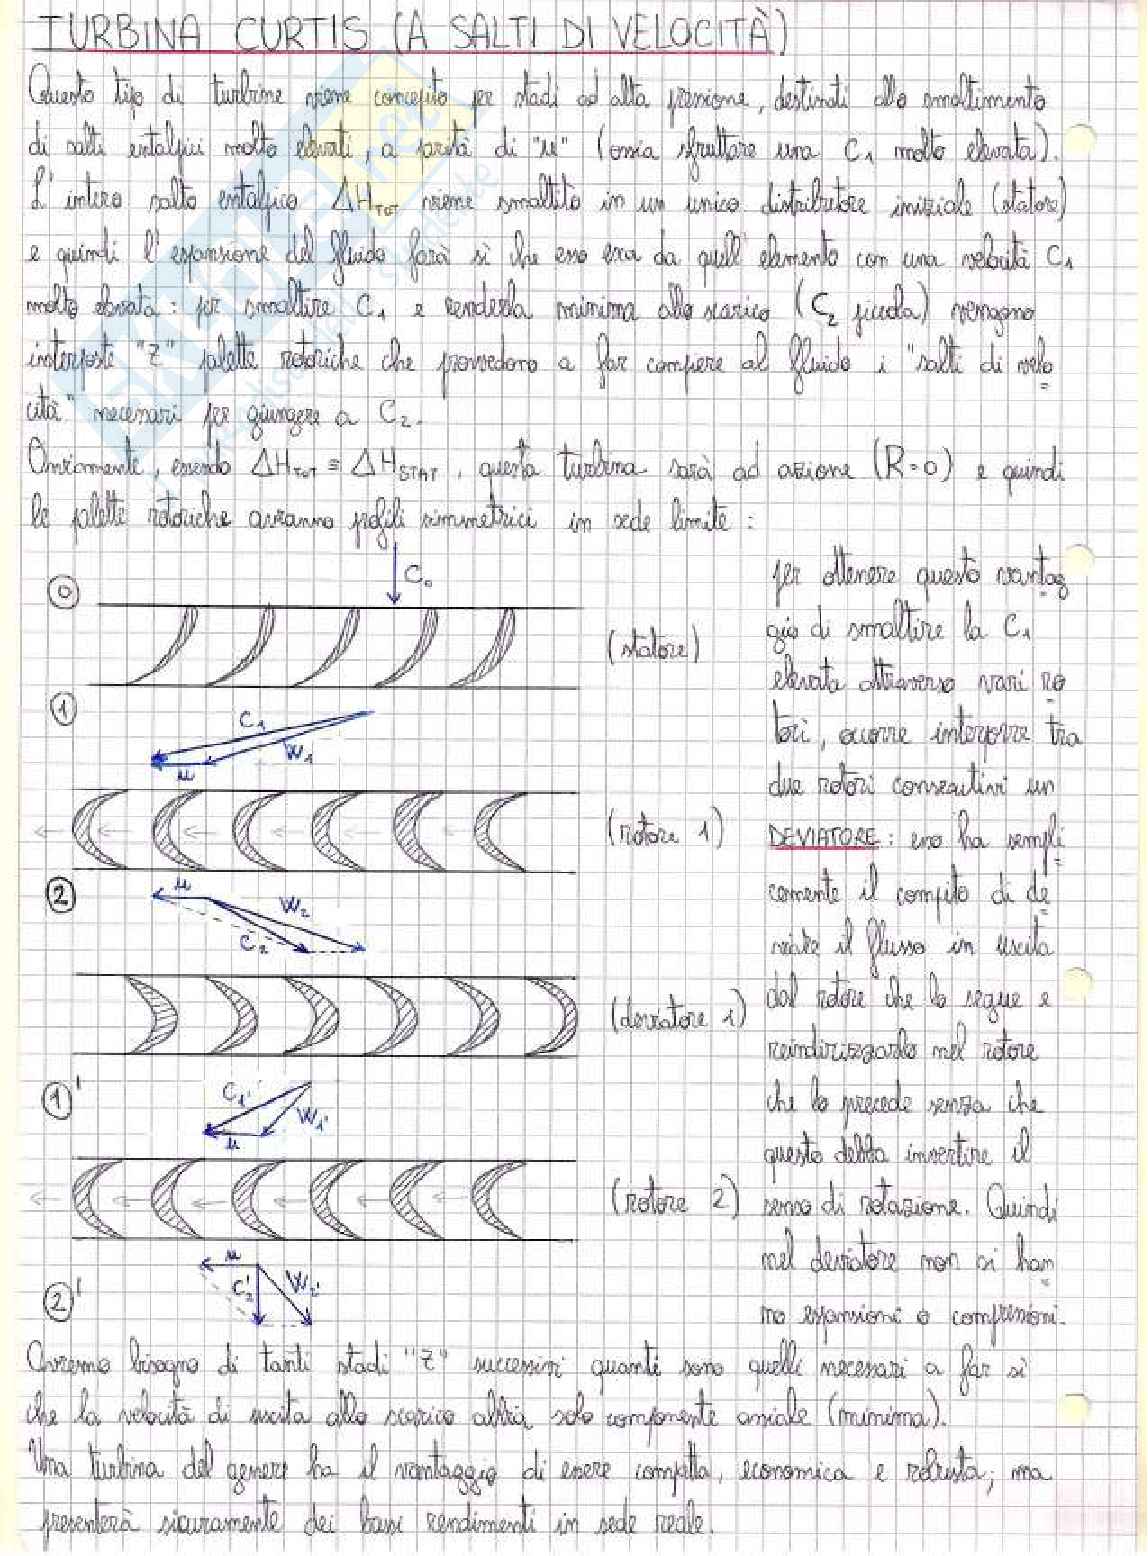 TURBINA CURTIS (A SALTI DI VELOCITÀ)
Questo tipo di turbine viene concepito per stadi ad alta pressione, destinati allo smaltimento
di salti entalpici molto elevati, a parità di "u" (ossia sfruttare una C1 molto elevata).
L'intero salto entalpico ΔHTOT viene smaltito in un unico distributore iniziale (statore)
e quindi l'espansione del fluido farà sì che esso esca da quell'elemento con una velocità C1
molto elevata: per smaltire C1 e renderla minima allo scarico (C2 piccola) vengono
interposte "Z" palette rotoriche che provvedono a far compere al fluido i "salti di velo
cità" necessari per giungere a C2.
Ovviamente, essendo ΔHTOT ≡ ΔHSTAT, questa turbina sarà ad azione (R=0) e quindi
le palette rotoriche avranno profili simmetrici in sede limite:
C0
0
(statore)
1
C1
W1
u
(rotore 1)
2
u
W2
C2
(deviatore 1)
1'
C1'
W1'
u
(rotore 2)
2'
u
C2'
W2'
per ottenere questo vantag
gio di smaltire la C1
elevata attraverso vari ro
tori, occorre interporre tra
due rotori consecutivi un
DEVIATORE: esso ha sempli
cemente il compito di de
viare il flusso in uscita
dal rotore che lo segue e
reindirizzarlo nel rotore
che lo precede senza che
questo debba invertire il
senso di rotazione. Quindi
nel deviatore non si han
no espansioni o compressioni.
Avremo bisogno di tanti stadi "Z" successivi quanti sono quelli necessari a far sì
che la velocità di uscita allo scarico abbia solo componente assiale (minima).
Una turbina del genere ha il vantaggio di essere compatta, economica e robusta; ma
presenterà sicuramente dei bassi rendimenti in sede reale.